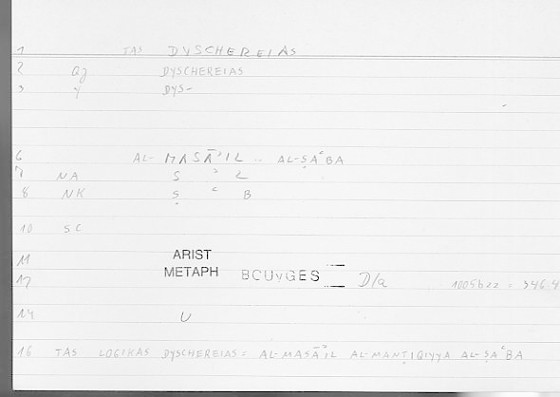 1 TAS DYSCHEREIAS
2 aj DYSCHEREIAS
3 γ DYS-
6 AL- MASĀʾIL .. AL-ṢAʿBA
7 NA S ʾ L
8 NK Ṣ ʿ B
10 SC
11 ARIST
12 METAPH BOUYGES D/a 1005b22 = 346.4
14 U
16 TAS LOGIKAS DYSCHEREIAS = AL-MASĀʾIL AL-MANṬIQIYYA AL-ṢAʿBA